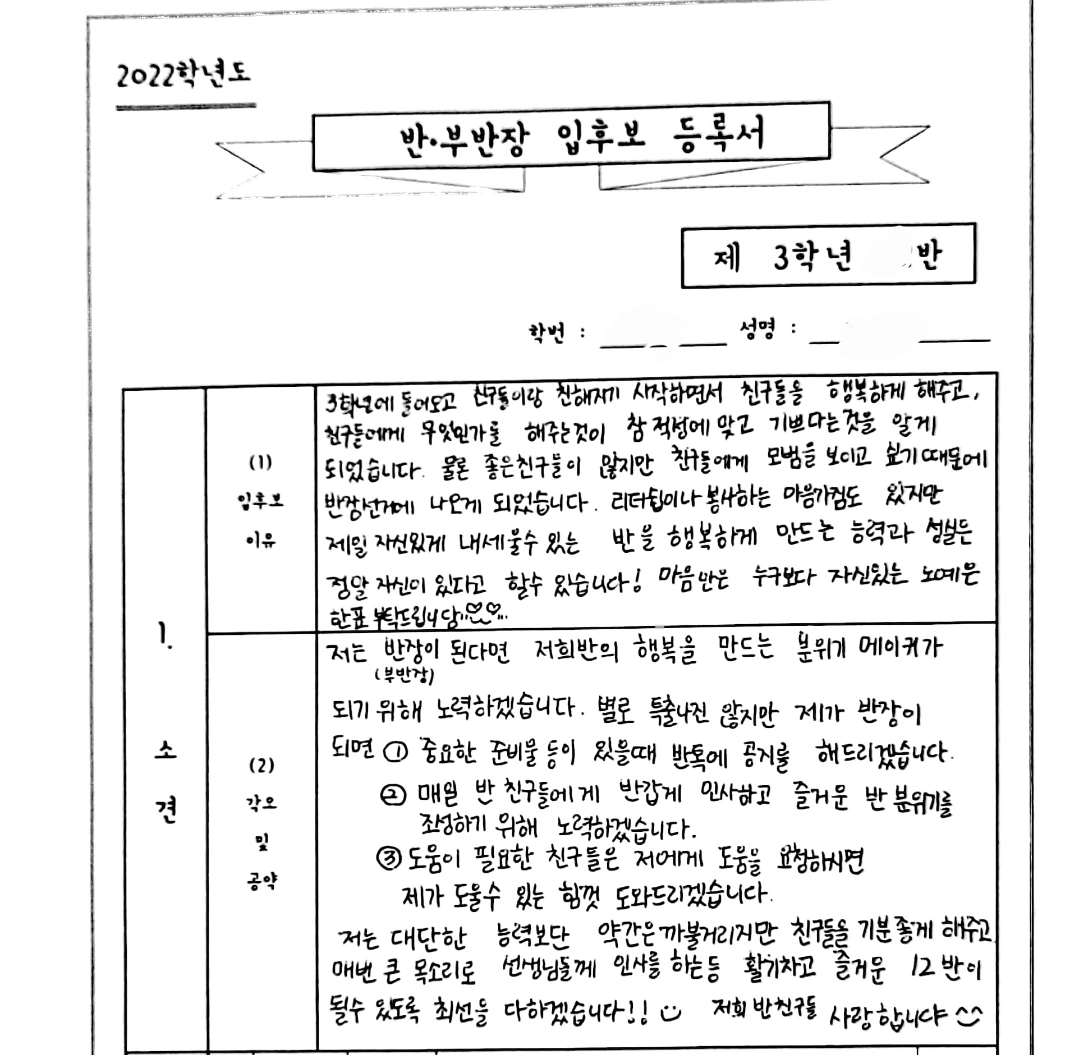 2022학년도
반·부반장 입후보 등록서
제 3학년 반
학번 : 성명 :
1.
소
견
(1)
입후보
이유
3학년에 들어오고 친구들이랑 친해지기 시작하면서 친구들을 행복하게 해주고,
친구들에게 무엇인가를 해주는것이 참 적성에 맞고 기쁘다는것을 알게
되었습니다. 물론 좋은친구들이 많지만 친구들에게 모범을 보이고 싶기때문에
반장선거에 나오게 되었습니다. 리더쉽이나 봉사하는 마음가짐도 있지만
제일 자신있게 내세울수 있는 반을 행복하게 만드는 능력과 성실은
정말 자신이 있다고 할수 있습니다! 마음만은 누구보다 자신있는 노예은
한표 부탁드립니당♡♡
(2)
각오
및
공약
저는 반장이 된다면 저희반의 행복을 만드는 분위기 메이커가
(부반장)
되기 위해 노력하겠습니다. 별로 특출나진 않지만 제가 반장이
되면 ① 중요한 준비물 등이 있을때 반톡에 공지를 해드리겠습니다.
② 매일 반 친구들에게 반갑게 인사하고 즐거운 반 분위기를
조성하기 위해 노력하겠습니다.
③ 도움이 필요한 친구들은 저에게 도움을 요청하시면
제가 도울수 있는 힘껏 도와드리겠습니다.
저는 대단한 능력보단 약간은 까불거리지만 친구들을 기분좋게 해주고
매번 큰 목소리로 선생님들께 인사를 하는등 활기차고 즐거운 12반이
될수 있도록 최선을 다하겠습니다!! 저희 반친구들 사랑합니다 ^^